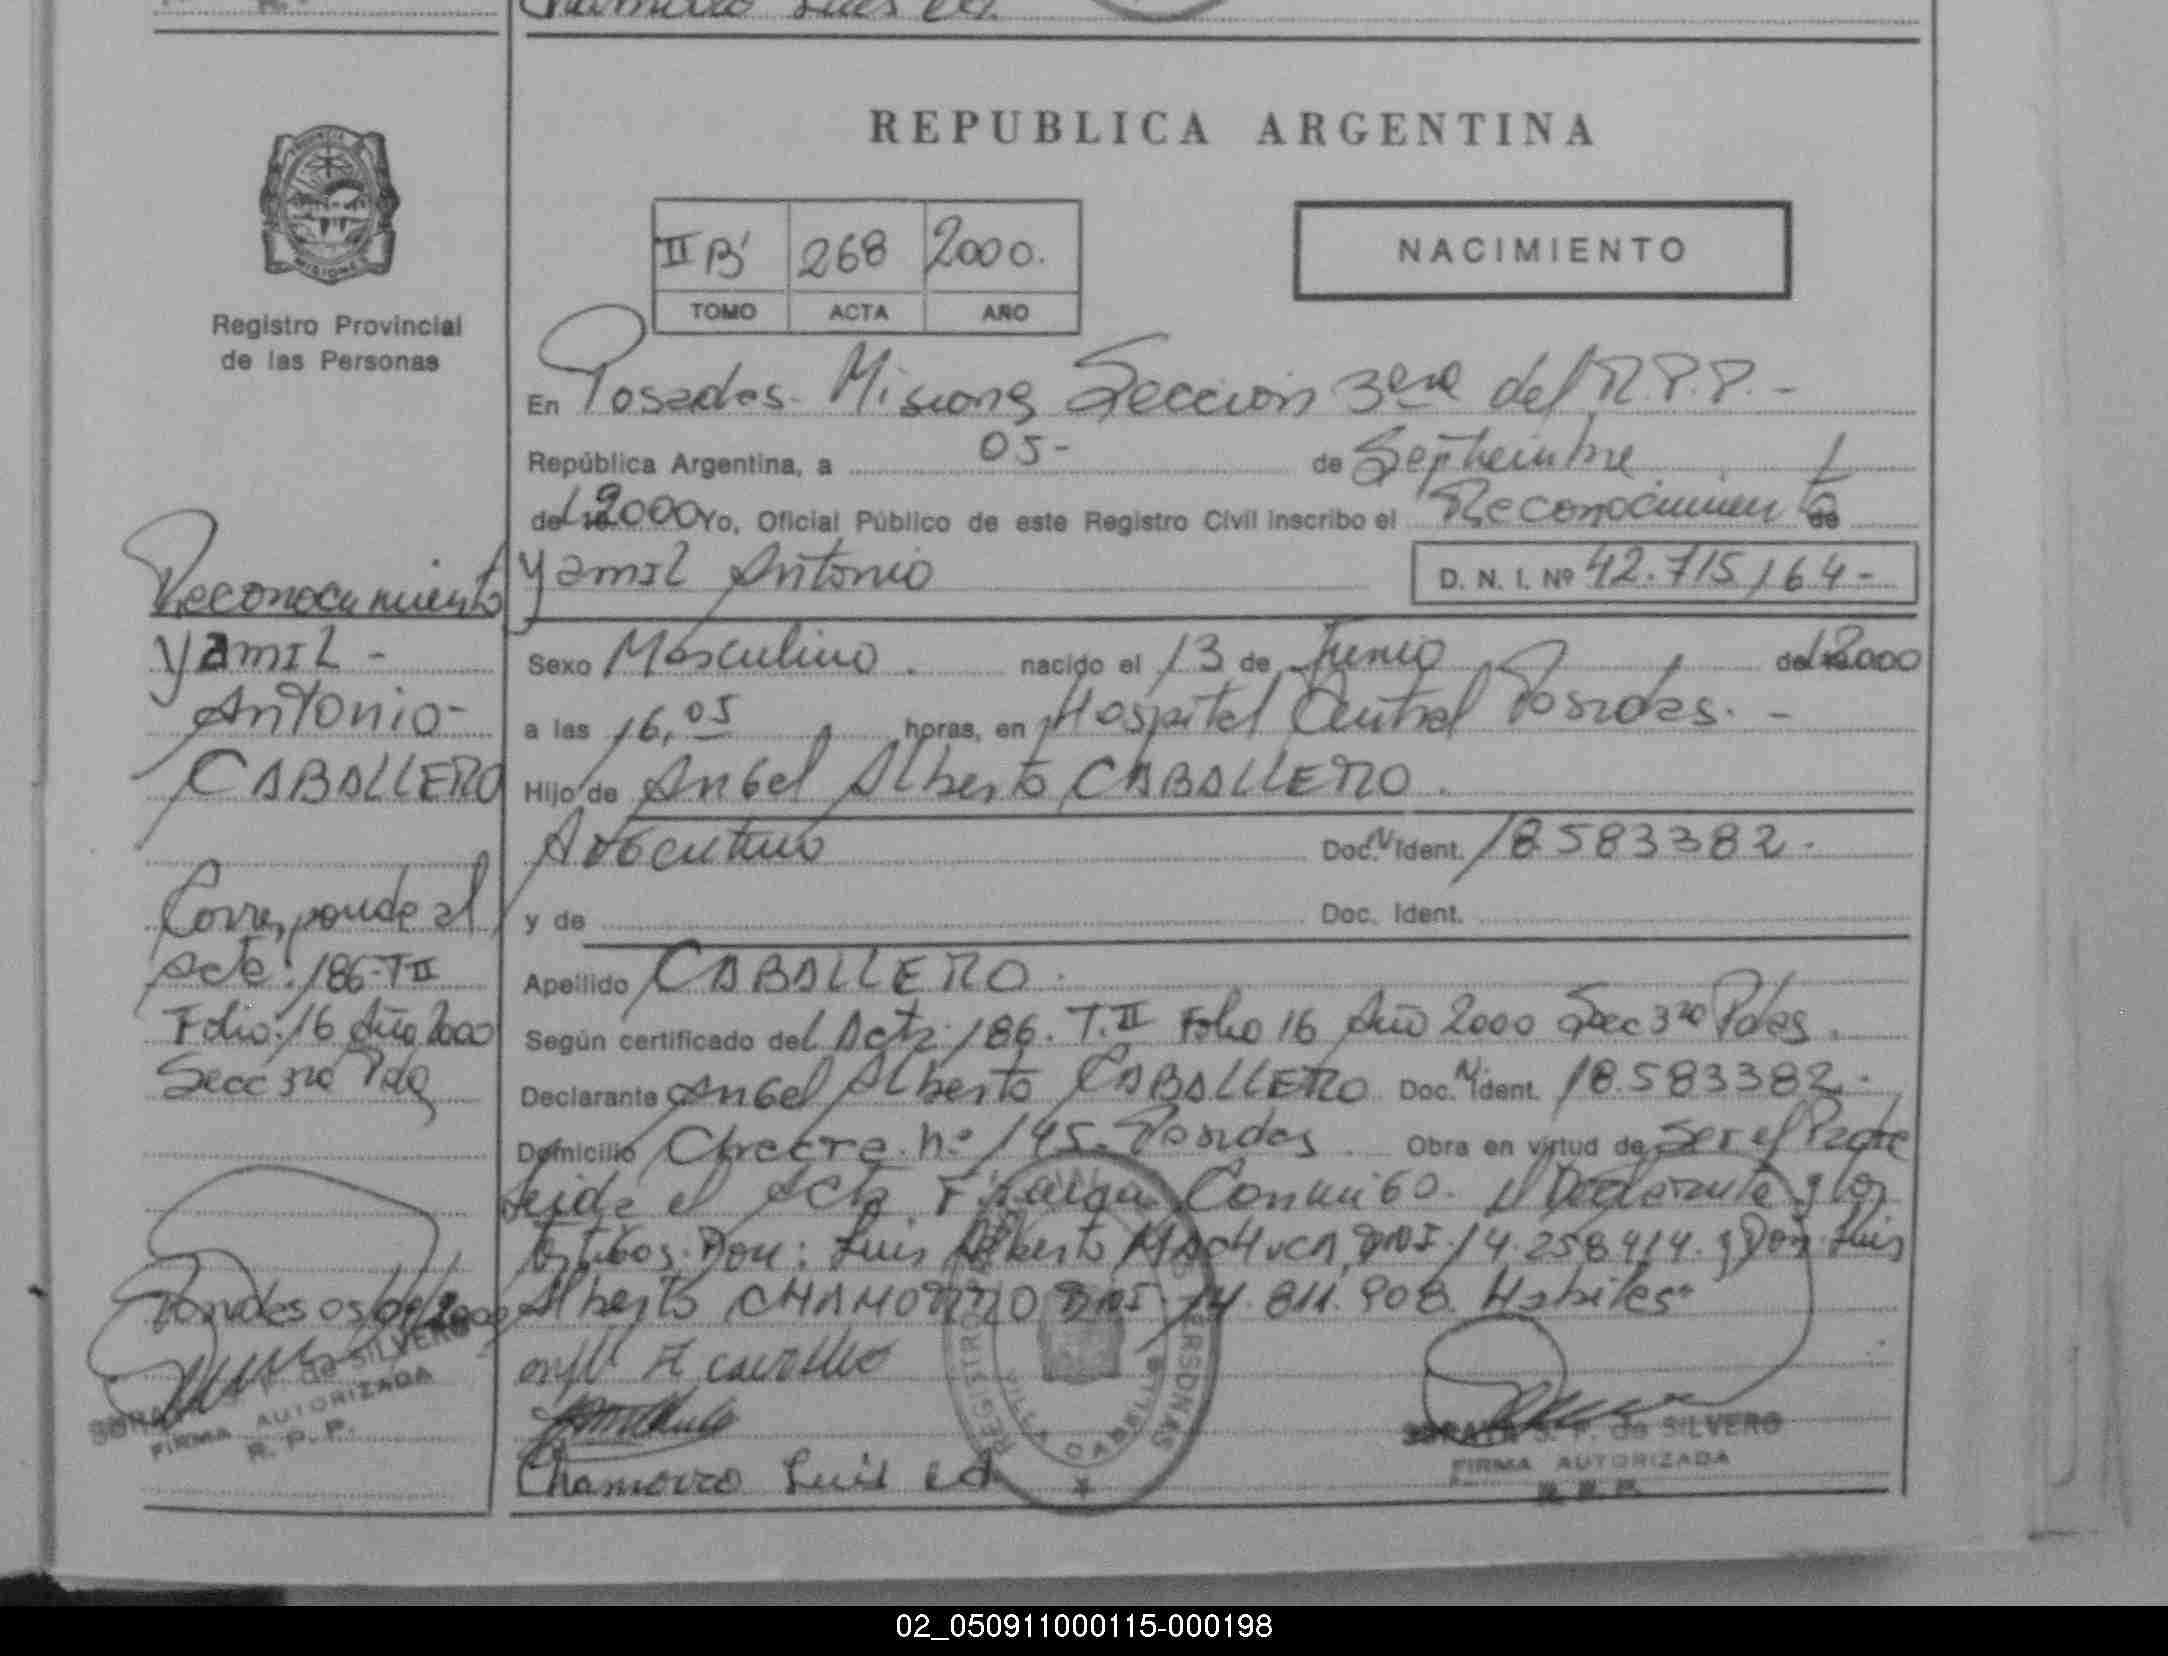 Chamorro Luis ed.
PROVINCIA
MISIONES
Registro Provincial
de las Personas
REPUBLICA ARGENTINA
II B' 268 2000.
TOMO ACTA AÑO
NACIMIENTO
En Posadas - Misiones Sección 3era del R.P.P. -
República Argentina, a 05- de Septiembre
del 2000 Yo, Oficial Público de este Registro Civil inscribo el Reconocimiento de
Yamil Antonio D. N. I. Nº 42.715,164-
Sexo Masculino . nacido el 13 de Junio del 2000
a las 16,05 horas, en Hospital Central Posadas. -
Hijo de Angel Alberto CABALLERO .
Argentino Doc. N. Ident. 18.583382.
y de Doc. Ident.
Apellido CABALLERO .
Según certificado del Acta: 186. T.II Folio 16 Año 2000 Secc 3ra Pdas.
Declarante Angel Alberto CABALLERO Doc. N. Ident. 18.583382.
Domicilio Chacra. nº 145. Posadas Obra en virtud de Ser el Padre
Leida el Acta Firman Conmigo. el Declarante y los
testigos. Don: Luis Alberto MACHUCA, DNI. 14.258.414. y Don Luis
Alberto CHAMORRO DNI. 14.811.908. Habiles"
Chamorro Luis ed.
REGISTRO PERSONAS
VILLA CABELLO
de SILVERO
FIRMA AUTORIZADA
R. P. P.
Reconocimiento
Yamil -
Antonio -
CABALLERO
Corresponde al
Acta: 186-T II
Folio: 16 Año 2000
Secc 3ra Pdas
Posadas 05/09/2000
de SILVERO
FIRMA AUTORIZADA
R. P. P.
02_050911000115-000198